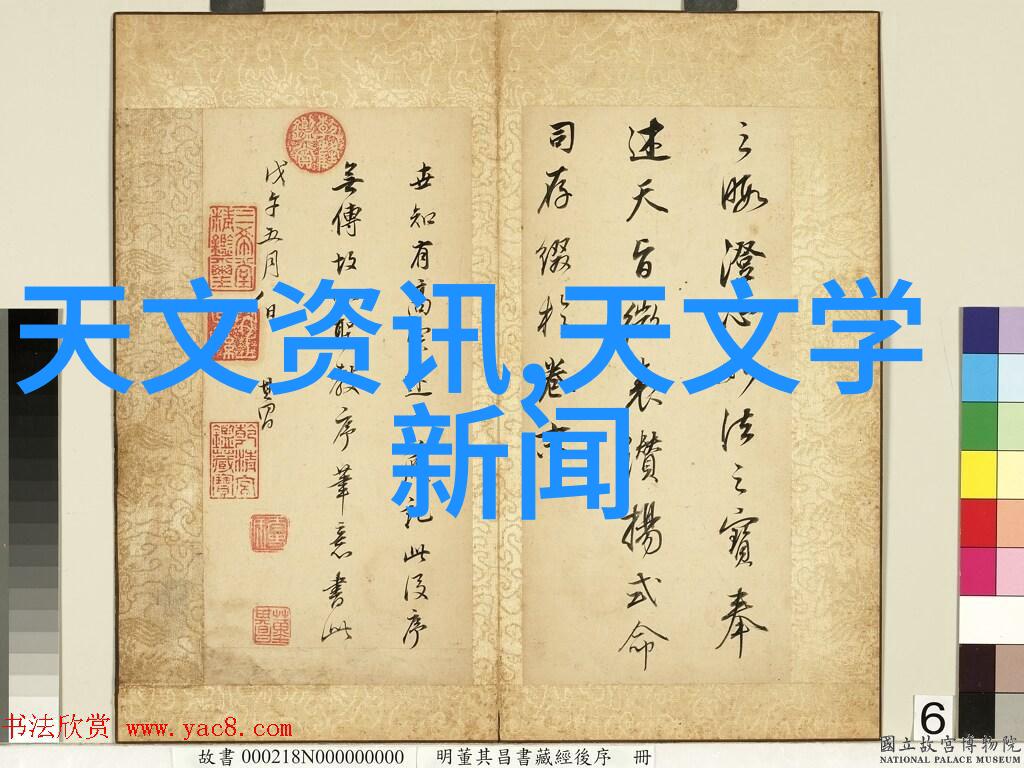 之晦澄心妙法之寶奉
述天旨微表讚揚式命
司存綴於卷末
世知有高宗述三藏記此後序
無傳故以聖教序筆意書此
戊午五月八日 其昌
天文资讯,天文学
新闻
6
书法欣赏 www.yac8.com
故書 000218N000000000
明董其昌書藏經後序 冊
國立故宮博物院
NATIONAL PALACE MUSEUM